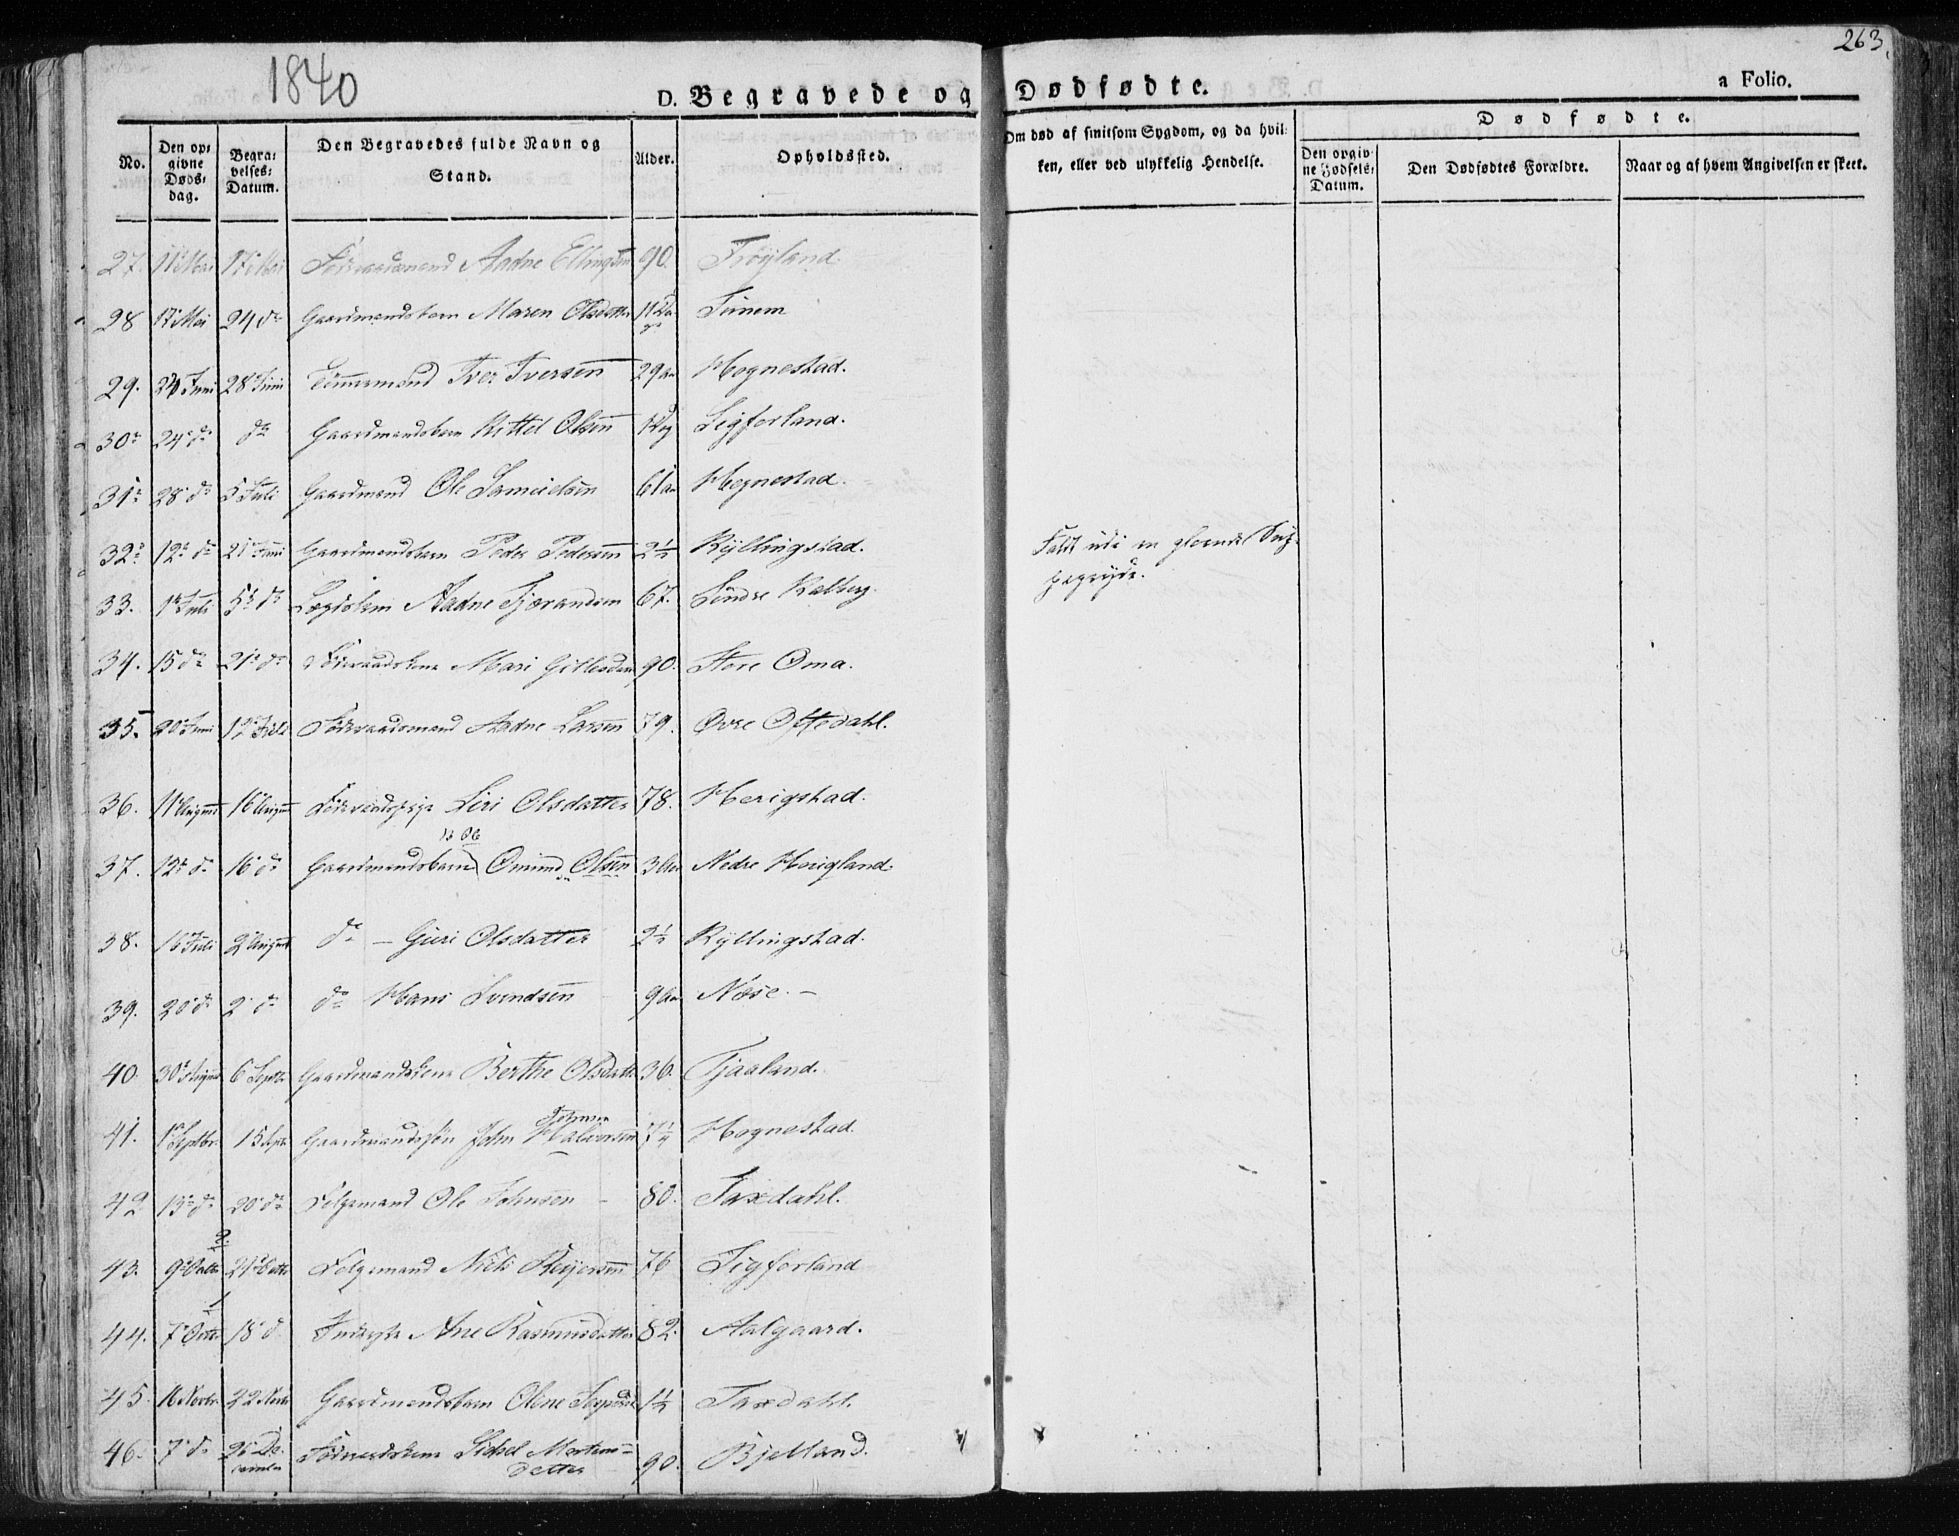 1840
263.
D. Begravede og Dødfødte.
a Folio.
No. Den opgivne Døds-dag. Begravelses-Datum. Den Begravedes fulde Navn og Stand. Alder. Opholdssted. Om død af smitsom Sygdom, og da hvilken, eller ved ulykkelig Hendelse. Dødfødte.
Den opgivne Fødsels-Datum. Den Dødfødtes Forældre. Naar og af hvem Angivelsen er skeet.
27. 11 Mai 17 Mai Føderaadsmand Aadne Ellingsen 90. Frøyland
28 17 Mai 24 do Gaardmandsbarn Maren Olsdatter 11 Dage
29. 20 Juni 28 Juni Iver Iversen 29 Hognestad.
30 24 do do Gaardmandsbarn Kittel Olsen Ligforland.
31 28 do 5 Juli Gaardmand Ole Samuelsen 61 Hognestad.
32 12 do 21 Juni Gaardmandsbarn Peder Pedersen 2½ Kyllingstad. Faldt udi en gloende
33. 1 Juli 5 do Lægdslem Aadne Tjorandsen 67. Søndre Kalberg.
34. 15 do 21 do Føderaadskone Mari 90. Store Oma.
35. 20 Juni 12 Juli Føderaadsmand Aadne Larsen 79. Øvre Oftedahl.
36. 11 August 16 August Siri Olsdatter 78. Herigstad.
37. 12 do 16 do Gaardmandsbarn Omund Olsen 3 Aar Nedre
38. 16 Juli 2 August do - Guri Olsdatter 2½ Kyllingstad.
39. 20 do 2 do do Hans Svendsen 9 Aar Næse. -
40. 30 August 6 Septbr Gaardmandskone Berthe Olsdatter 36. Tjaaland.
Johnsen
41. 1 Septbr. 15 Septbr Gaardmandssøn John Halvorsen 7¼ Hognestad.
42 13 do 20 do Folgemand Ole Johnsen - 80. Taxdahl.
2.
43. 9 Octbr 21 Octbr Folgemand Niels Reiersen 76 Ligforland
1
44. 7 Octbr 18 d. Ane Rasmusdatter 82. Aalgaard.
45. 16 Novbr. 22 Novbr Gaardmandsbarn Oline 1½ Taxdahl.
46. 7 do Føderaadskone Sidsel Mortens-
datter 90. Bjelland.